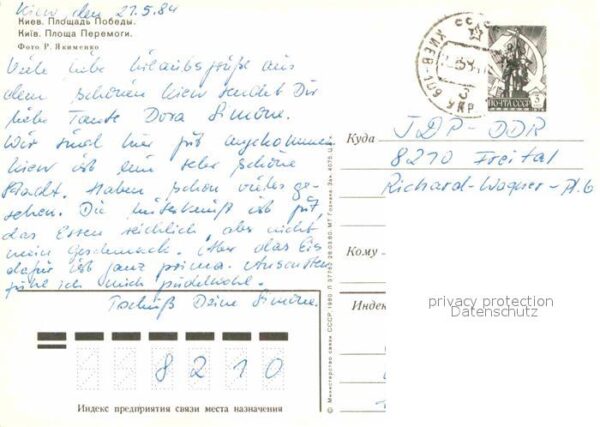 Kiew den 27.5.84
Киев. Площадь Победы.
Київ. Площа Перемоги.
Фото Р. Якименко
Viele liebe Urlaubsgrüße aus
dem schönen Kiew sendet Dir
liebe Tante Dora Simone.
Wir sind hier gut angekommen
Kiew ist eine sehr schöne
Stadt. Haben schon vieles ge-
sehen. Die Unterkunft ist gut,
das Essen reichlich, aber nicht
mein Geschmack. Aber das Eis
dafür ist ganz prima. Ansonsten
fühl ich mich pudelwohl.
Tschüß Deine Simone.
СССР
КИЕВ-601
УКР
ПОЧТА СССР
Куда
DDR
8210 Freital
Richard-Wagner-
Кому
Индек
privacy protection
Datenschutz
8210
Индекс предприятия связи места назначения
© Министерство связи СССР, 1980